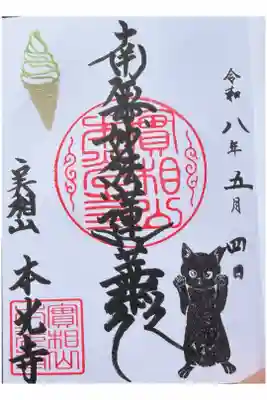 令和八年五月四日
南無妙法蓮華経
實相山
実相山
本光寺
實相山